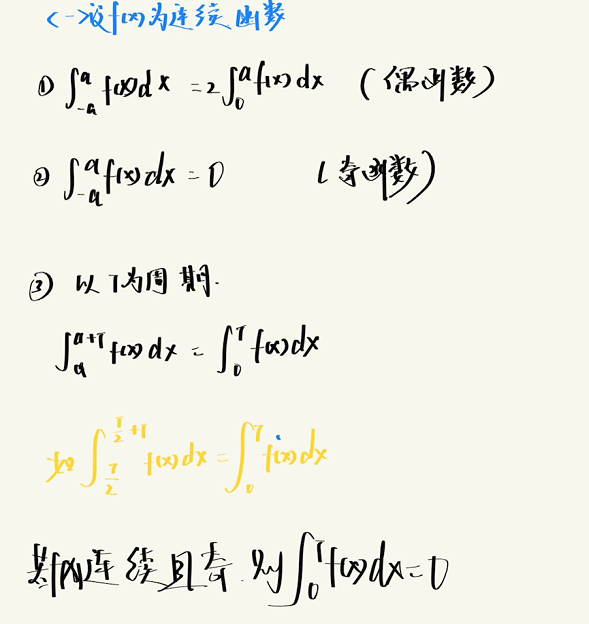 <一>设f(x)为连续函数
① ∫_{-a}^{a} f(x)dx = 2∫_{0}^{a} f(x)dx (偶函数)
② ∫_{-a}^{a} f(x)dx = 0 (奇函数)
③ 以T为周期.
∫_{a}^{a+T} f(x)dx = ∫_{0}^{T} f(x)dx
如 ∫_{T/2}^{T/2+T} f(x)dx = ∫_{0}^{T} f(x)dx
若f(x)连续且奇.则∫_{0}^{T} f(x)dx=0